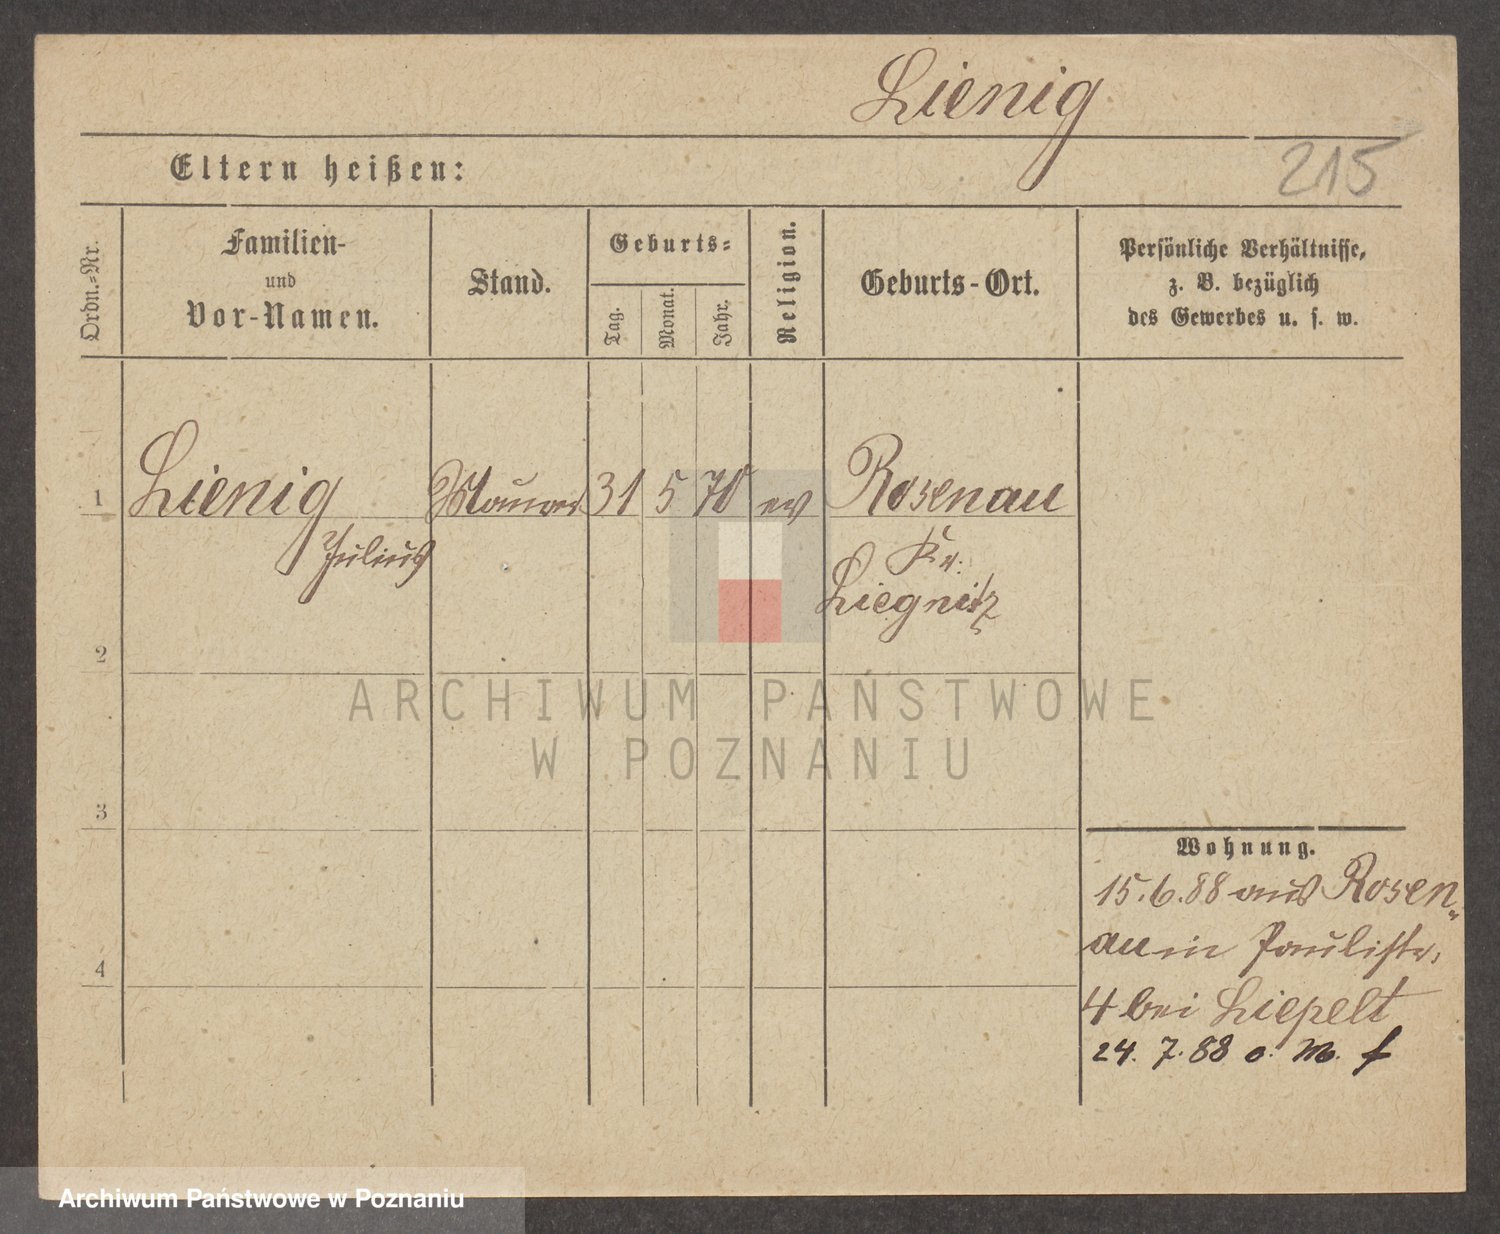 Lienig
215
Eltern heißen:
Ordn.-Nr.
Familien-
und
Vor-Namen.
Stand.
Geburts-
Tag.
Monat.
Jahr.
Religion.
Geburts-Ort.
Persönliche Verhältnisse,
z. B. bezüglich
des Gewerbes u. s. w.
1 Lienig Maurer 31 5 70 ev Rosenau
Julius Kr.
Liegnitz
2
3
4
ARCHIWUM PAŃSTWOWE
W POZNANIU
Wohnung.
15.6.88 aus Rosen-
au in Paulistr.
4 bei Liepelt
24. 7. 88 o. M. f
Archiwum Państwowe w Poznaniu